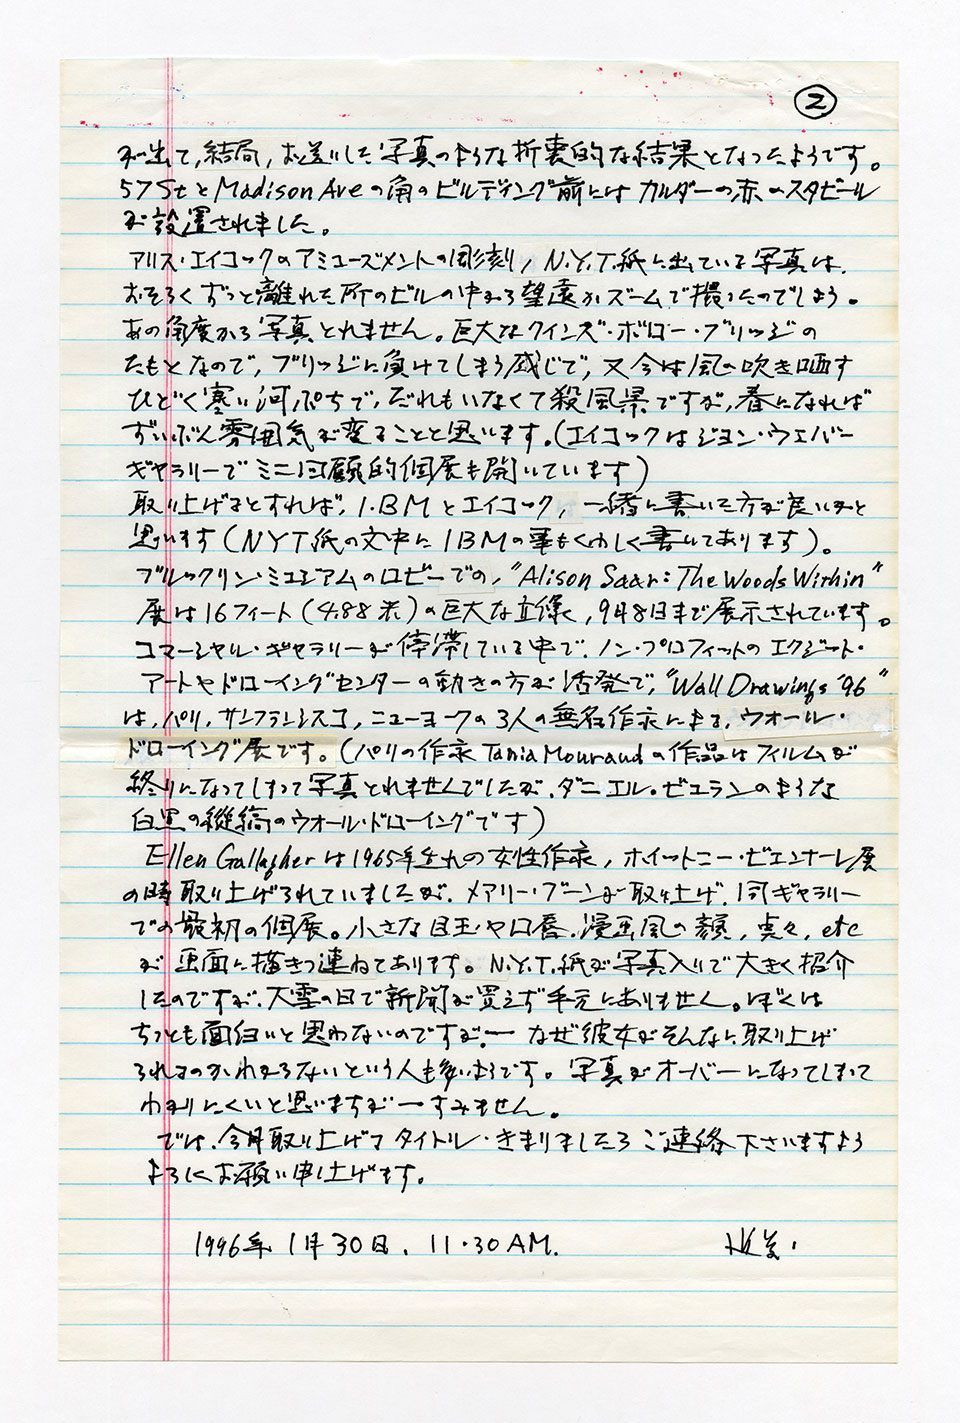 ②
が出て,結局,お送りした写真のような折衷的な結果となったようです。
57StとMadison Aveの角のビルディング前には カルダーの赤いスタビール
が設置されました。
アリス・エイコックのアミューズメントの彫刻, N.Y.T.紙に出ている写真は,
おそらくずっと離れた所のビルの中から望遠かズームで撮ったのでしょう。
あの角度から写真とれません。巨大なクインズ・ボロー・ブリッジの
たもとなので,ブリッジに負けてしまう感じで,又今は風の吹き晒す
ひどく寒い河ぷちで,だれもいなくて殺風景ですが,春になれば
ずいぶん雰囲気が変ることと思います。(エイコックはジョン・ウェバー
ギャラリーでミニ回顧的個展も開いています)
取り上げるとすれば,I.BMとエイコック, 一緒に書いた方が良いかと
思います(NYT紙の文中にIBMの事もくわしく書いてあります)。
ブルックリン・ミュジアムのロビーでの,"Alison Saar: The Woods Within"
展は16フィート(4.88米)の巨大な立像で,9月8日まで展示されています。
コマーシャル・ギャラリーが停滞している中で,ノン・プロフィットのエクジット・
アートやドローイングセンターの動きの方が活発で,"Wall Drawings '96"
は,パリ,サンフランシスコ,ニューヨークの3人の無名作家による,ウォール・
ドローイング展です。(パリの作家Tania Mouraudの作品はフィルムが
終りになってしまって写真とれませんでしたが,ダニエル・ビュランのような
白黒の縦縞のウォール・ドローイングです)
Ellen Gallagherは1965年生れの女性作家,ホイットニー・ビエンナーレ展
の時取り上げられていましたが,メアリー・ブーンが取り上げ,同ギャラリー
での最初の個展。小さな目玉や口唇,漫画風の顔,点々,etc
が画面に描きつ連ねてあります。N.Y.T.紙が写真入りで大きく紹介
したのですが,大雪の日で新聞が買えず手元にありません。ぼくは
ちっとも面白いと思わないのですが,ー なぜ彼女がそんなに取り上げ
られるのかわからないという人も多いようです。写真がオーバーになってしまって
わかりにくいと思いますがーすみません。
では,今月取り上げるタイトル・きまりましたらご連絡下さいますよう
よろしくお願い申し上げます。
1996年1月30日, 11.30AM.